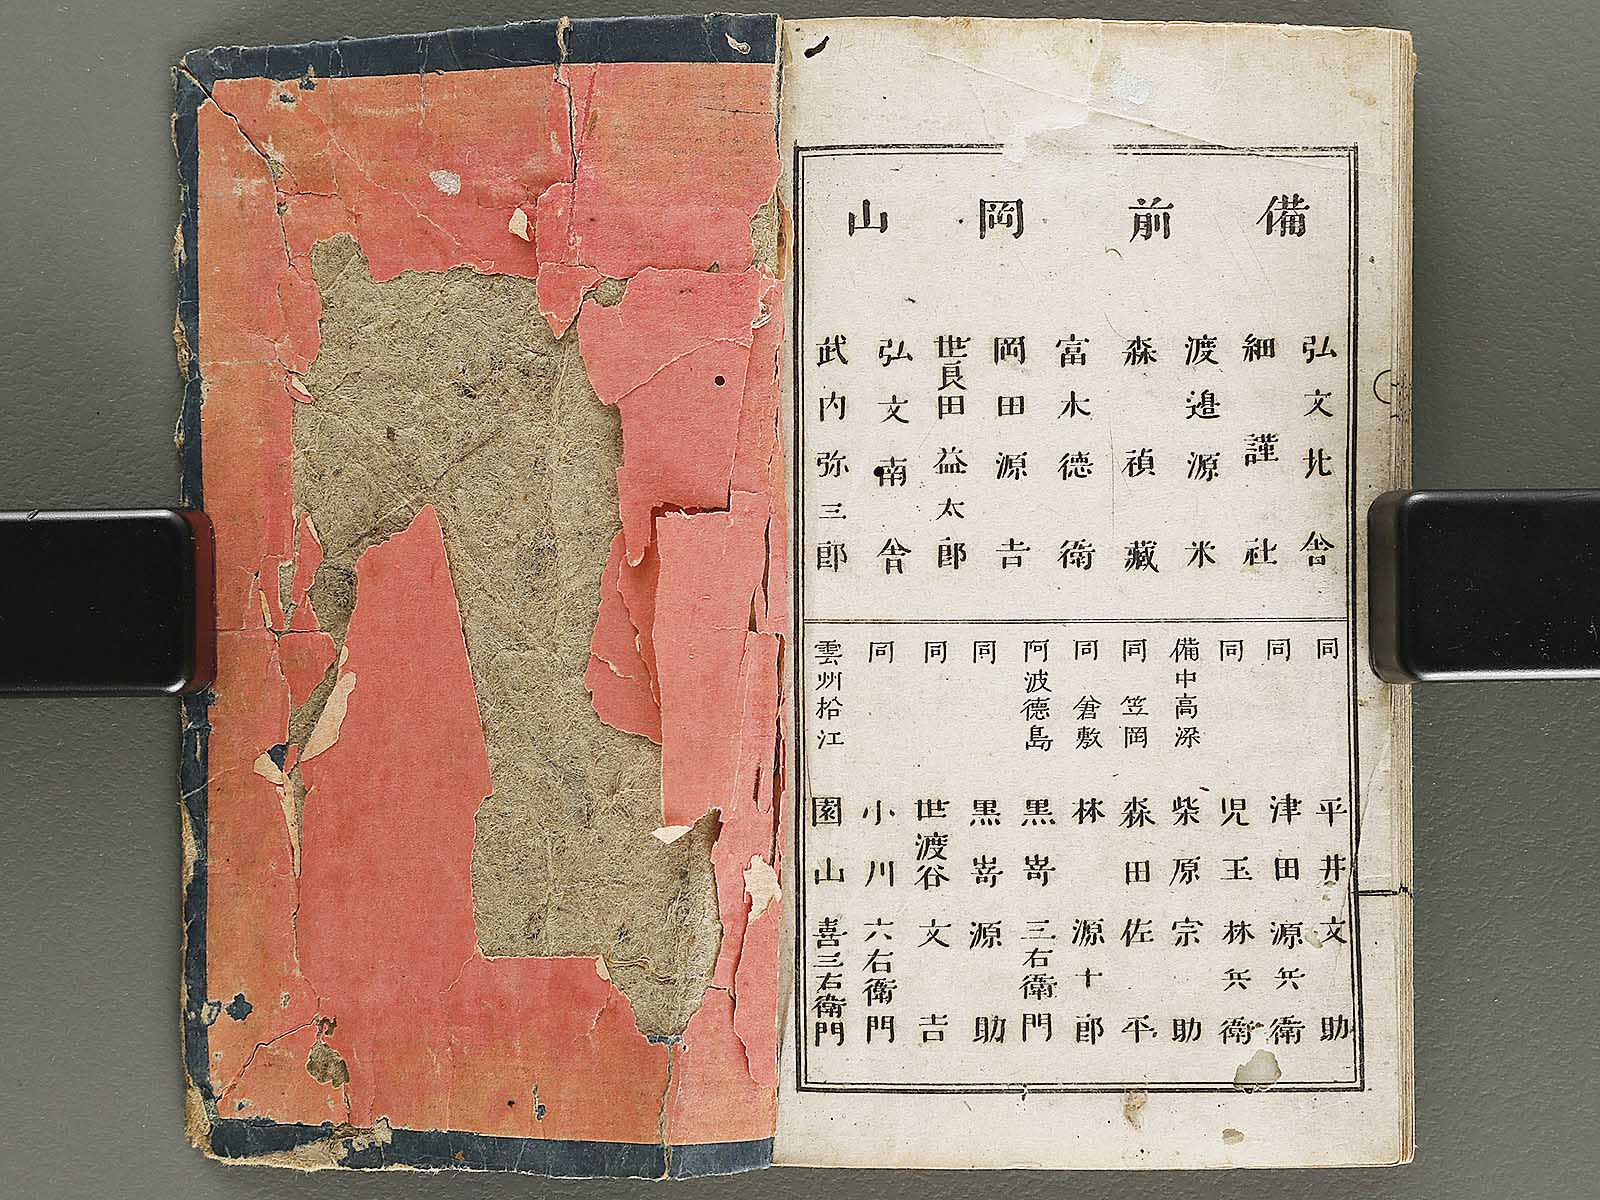 備前岡山
弘文北舎
細謹社
渡邉源米
森禎藏
富木德衛
岡田源吉
世良田益太郎
弘文南舎
武内弥三郎
同 平井文助
同 津田源兵衛
同 児玉林兵衛
備中高梁 柴原宗助
同 笠岡 森田佐平
同 倉敷 林源十郎
阿波德島 黒嵜三右衛門
同 黒嵜源助
同 世渡谷文吉
同 小川六右衛門
雲州松江 園山喜三右衛門